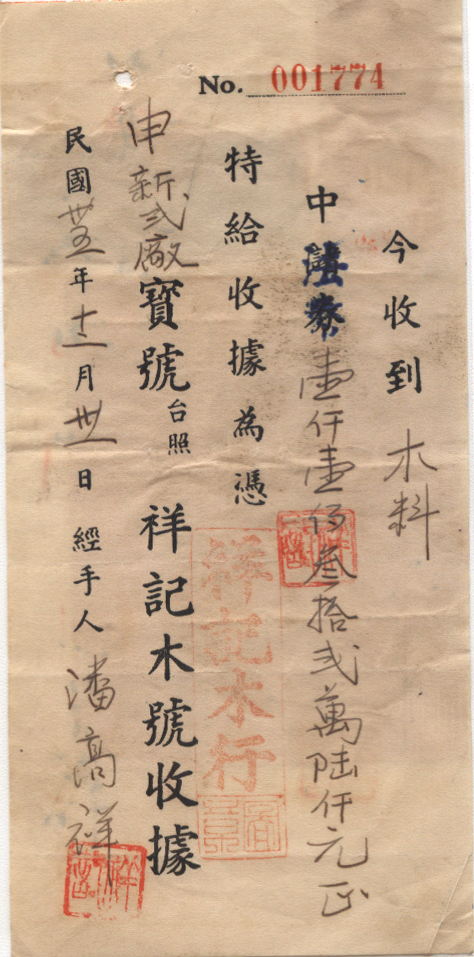 No. 001774
今收到木料
中壹仟壹佰叁拾弍萬陸仟元正
特給收據為憑
祥記木行
申新弍廠寶號台照
祥記木號收據
民國卅五年十二月卅一日經手人潘高祥